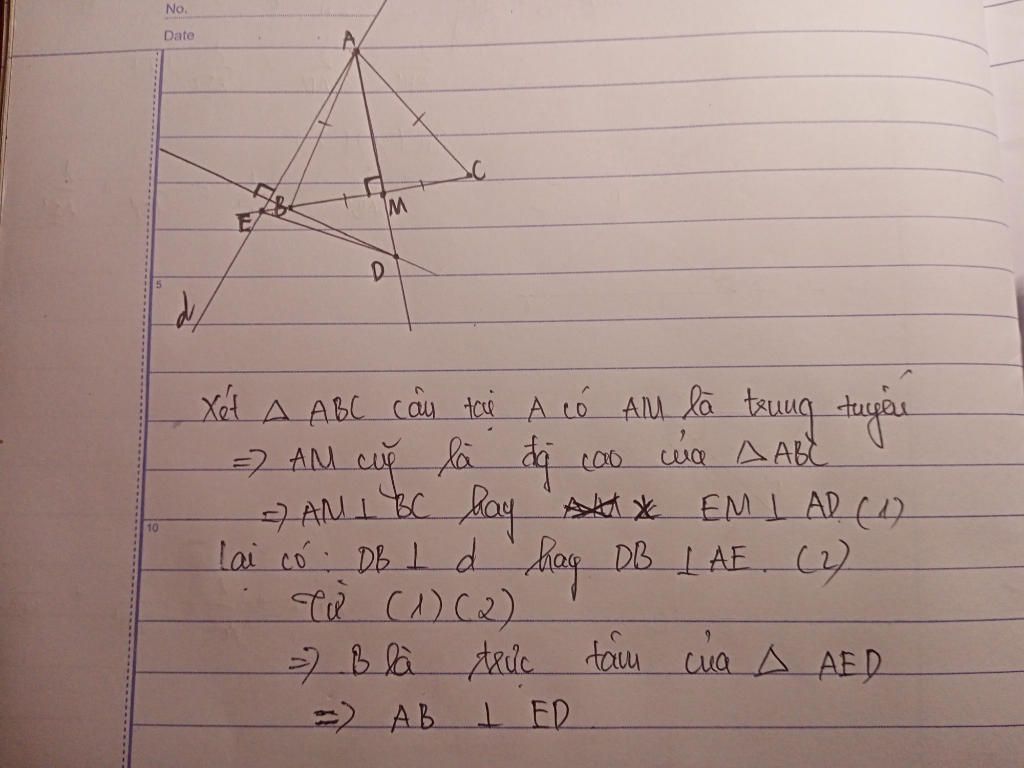 No.
Date
A
C
E
B
M
D
5
d
Xét △ ABC cân tại A có AM là trung tuyến
=> AM cũg là đg cao của △ABC
=> AM ⊥ BC hay EM ⊥ AD. (1)
10
lại có: DB ⊥ d hay DB ⊥ AE. (2)
Từ (1) (2)
=> B là trực tâm của △ AED
=> AB ⊥ ED